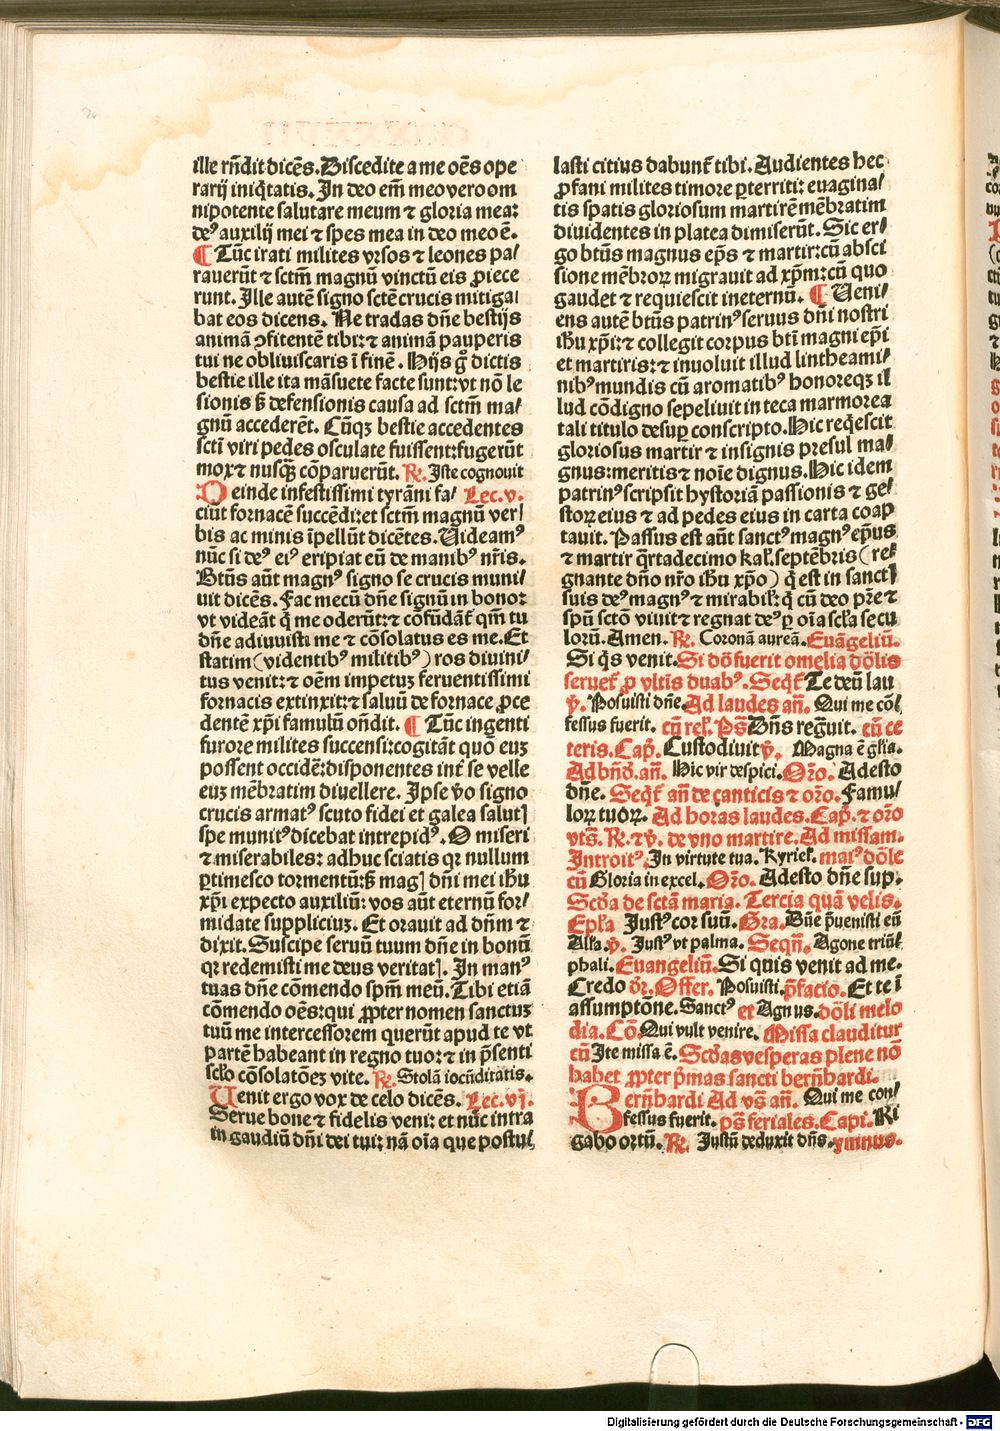 ille rñdit dicẽs. Discedite a me oẽs ope
rarij iniq̃tatis. In deo em̃ meo vero om
nipotente salutare meum ⁊ gloria mea:
deꝰ auxilij mei ⁊ spes mea in deo meo ẽ.
¶ Tũc irati milites vrsos ⁊ leones pa/
rauerũt ⁊ sctm̃ magnũ vinctũ eis ꝓiece
runt. Ille autẽ signo sctẽ crucis mitiga
bat eos dicens. Ne tradas dñe bestijs
animã ↄfitentẽ tibi: ⁊ animã pauperis
tui ne obliuiscaris ĩ finẽ. Hijs g̃ dictis
bestie ille ita mãsuete facte sunt: vt nõ le
sionis s̃ defensionis causa ad sctm̃ ma/
gnũ accederẽt. Cũqꝫ bestie accedentes
sctĩ viri pedes osculate fuissent: fugerũt
mox ⁊ nusq̃ cõparuerũt. ℟. Iste cognouit
Deinde infestissimi tyrãni fa/ Lec. v.
ciũt fornacẽ succẽdi: et sctm̃ magnũ ver/
bis ac minis ĩpellũt dicẽtes. Uideamꝰ
nũc si deꝰ eiꝰ eripiat eũ de manibꝰ nr̃is.
Btũs aũt magnꝰ signo se crucis muni/
uit dicẽs. Fac mecũ dñe signũ in bonoꝛ
vt videãt q̃ me oderũt: ⁊ cõfũdãt̃ qm̃ tu
dñe adiuuisti me ⁊ cõsolatus es me. Et
statim (videntibꝰ militibꝰ) ros diuini/
tus venit: ⁊ oẽm impetuꝫ feruentissimi
fornacis extinxit: ⁊ saluũ de fornace ꝓce
dentẽ xp̃i famulũ oñdit. ¶ Tũc ingenti
furore milites succensi: cogitãt quõ euꝫ
possent occidẽ: disponentes int̃ se velle
euꝫ mẽbratim diuellere. Ipse ṽo signo
crucis armatꝰ scuto fidei et galea salutꝭ
spe munitꝰ dicebat intrepidꝰ. O miseri
⁊ miserabiles: adhuc sciatis qꝛ nullum
ꝑtimesco tormentũ: s̃ magꝭ dñi mei ihũ
xp̃i expecto auxiliũ: vos aũt eternũ for/
midate suppliciuꝫ. Et orauit ad dñm ⁊
dixit. Suscipe seruũ tuum dñe in bonũ
qꝛ redemisti me deus veritatꝭ. In manꝰ
tuas dñe cõmendo spm̃ meũ. Tibi etiã
cõmendo oẽs: qui ꝓpter nomen sanctuꝫ
tuũ me intercessorem querũt apud te vt
partẽ habeant in regno tuo: ⁊ in p̃senti
scl̃o cõsolatõeꝫ vite. ℟. Stolã iocũditatis.
Uenit ergo vox de celo dicẽs. Lec. vj.
Serue bone ⁊ fidelis veni: et nũc intra
in gaudiũ dñi dei tui: nã oĩa que postu/
lasti citius dabunt̃ tibi. Audientes hec
ꝓfani milites timore ꝑterriti: euagina/
tis spatis gloriosum martirẽ mẽbratim
diuidentes in platea dimiserũt. Sic er/
go btũs magnus ep̃s ⁊ martir: cũ absci
sione mẽbroꝝ migrauit ad xp̃m: cũ quo
gaudet ⁊ requiescit ineternũ. ¶ Ueni/
ens autẽ btũs patrinꝰ seruus dñi nostri
ihũ xp̃i: ⁊ collegit corpus btĩ magni ep̃i
et martiris: ⁊ inuoluit illud lintheami/
nibꝰ mundis cũ aromatibꝰ honoreqꝫ il
lud cõdigno sepeliuit in teca marmorea
tali titulo desuꝑ conscripto. Hic req̃escit
gloriosus martir ⁊ insignis presul ma/
gnus: meritis ⁊ noĩe dignus. Hic idem
patrinꝰ scripsit hystoriã passionis ⁊ ge/
stoꝝ eius ⁊ ad pedes eius in carta coap
tauit. Passus est aũt sanctꝰ magnꝰ ep̃us
⁊ martir q̃rtadecimo kal̃. septẽbris (re/
gnante dño nr̃o ihũ xp̃o) q̃ est in sanctꝭ
suis deꝰ magnꝰ ⁊ mirabil̃: q̃ cũ deo pr̃e ⁊
spũ sctõ viuit ⁊ regnat deꝰ ꝑ oĩa scl̃a secu
lorũ. Amen. ℟. Coronã aureã. Euãgeliũ.
Si q̃s venit. Si dõ fuerit omelia dõlis
seruet̃ ꝓ vltis duabꝰ. Seq̃t̃ Te deũ lau
℣. Posuisti dñe. Ad laudes añ. Qui me cõ/
fessus fuerit. cũ rel̃. Ps̃ Dñs reg̃uit. cũ ce
teris. Cap̃. Custodiuit ℣. Magna ẽ gl̃ia.
Ad bñd̃. añ. Hic vir despici. Or̃o. Adesto
dñe. Seq̃t̃ añ de canticis ⁊ or̃o. Famu/
loꝝ tuoꝝ. Ad horas laudes. Cap̃. ⁊ or̃o
vts̃. ℟. ⁊ ℣. de vno martire. Ad missam.
Introitꝰ. In virtute tua. Kyriel̃. maiꝰ dõle
cũ Gloria in excel. Or̃o. Adesto dñe sup.
Scd̃a de sctã maria. Tercia quã velis.
Epl̃a Justꝰ cor suũ. Gra. Dñe p̃uenisti eũ
All̃a. ℣. Justꝰ vt palma. Seqñ. Agone triũ/
phali. Euangeliũ. Si quis venit ad me.
Credo dr̃. Offer. Posuisti. p̃facio. Et te ĩ
assumptõne. Sanctꝰ et Agnus. dõli melo
dia. Cõ. Qui vult venire. Missa clauditur
cũ Ite missa ẽ. Scd̃as vesperas plene nõ
habet ꝓpter p̃mas sancti berñhardi.
Berñhardi Ad vs̃ añ. Qui me con/
fessus fuerit. ps̃ feriales. Capi. Ri
gabo ortũ. ℟. Justũ deduxit dñs. ymnus.
Digitalisierung gefördert durch die Deutsche Forschungsgemeinschaft - DFG